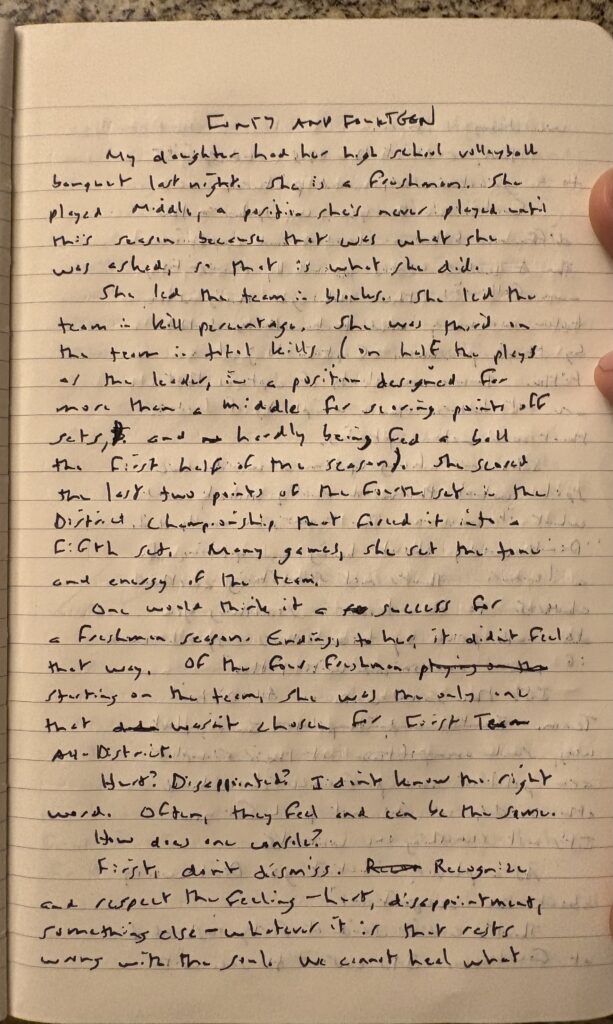 FORTY AND FOURTEEN
My daughter had her high school volleyball
banquet last night. She is a freshman. She
played middle, a position she's never played until
this season because that was what she
was asked, so that is what she did.
She led the team in blocks. She led the
team in kill percentage. She was third on
the team in total kills (on half the plays
as the leader, in a position designed for
more than a middle for scoring points off
sets, and hardly being fed a ball
the first half of the season). She scored
the last two points of the fourth set in the
District Championship that forced it into a
fifth set. Many games, she set the tone
and energy of the team.
One would think it a success for
a freshman season. Ending, to her, it didn't feel
that way. Of the four freshman playing on the
starting on the team, she was the only one
that wasn't chosen for First Team
All-District.
Hurt? Disappointed? I don't know the right
word. Often, they feel and can be the same.
How does one console?
First, don't dismiss. Recognize
and respect the feeling – hurt, disappointment,
something else – whatever it is that rests
wrong with the soul. We cannot heal what